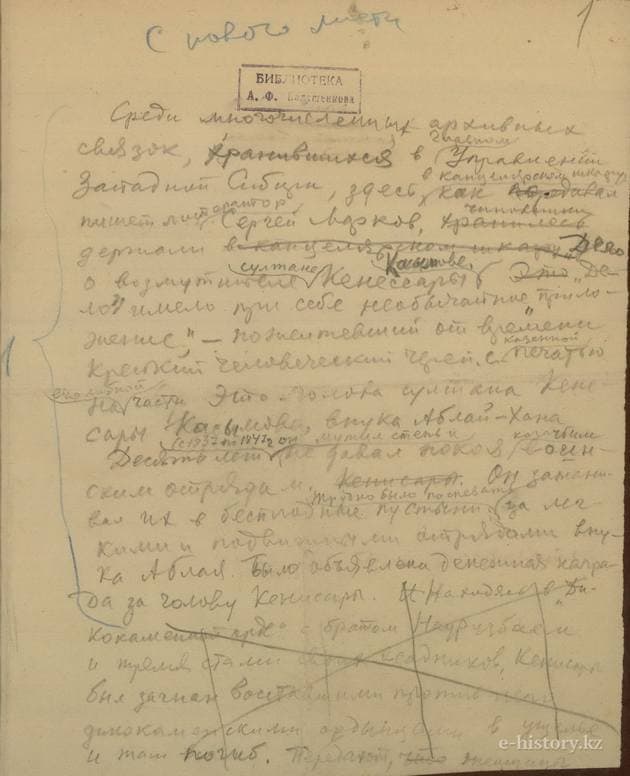 С нового листа
1
БИБЛИОТЕКА
А. Ф.
Среди многочисленных архивных
связок, хранившихся в Главном Управлении
Западной Сибири, здесь, как
в канцелярском шкафу
пишет литератор Сергей Марков, хранилось
чиновники
держали в канцелярском шкафу "Дело
о возмутителе султане Кенессары Касымове. Это "Де-
ло" имело при себе необычайное прило-
жение" — пожелтевший от времени
крепкий человеческий череп с казенной печатью
на лобной части. Это голова султана Кене-
сары Касымова, внука Аблай-Хана
Десять лет (с 1837 по 1847 г. он мутил степь и не давал покоя казачьим воин-
ским отрядам. Кенисары. Он замани-
вал их в бесплодные пустыни
Трудно было поспевать за лег-
кими и подвижными отрядами вну-
ка Аблая. Было объявлена денежная награ-
да за голову Кенисары. И Находясь в "Ди-
кокаменной орде" с братом Наурузбаем
и тремя стами своих всадников, Кенисары
был загнан восставшими против него
дикокаменскими ордынцами в ущелье
и там погиб. Передают, что
1
e-history.kz